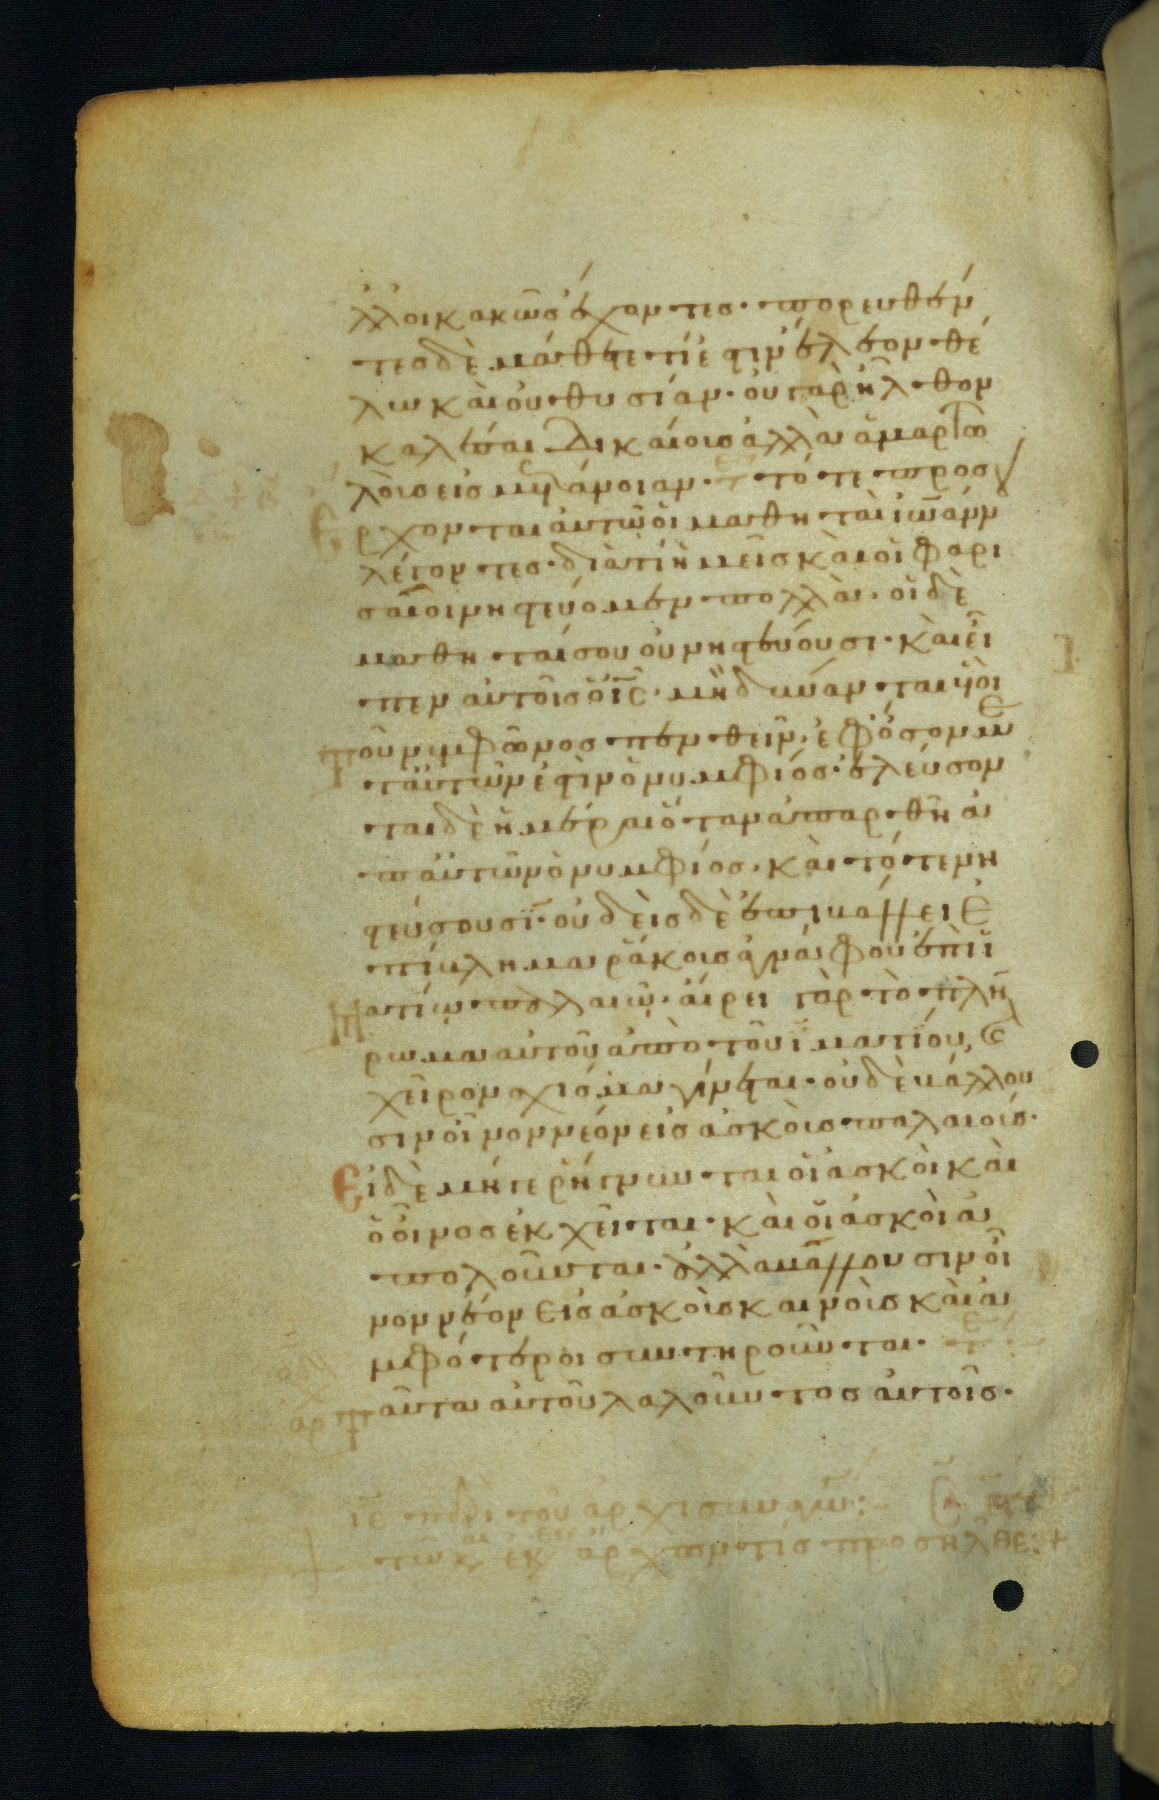 ἀλλοι κακῶς ἔχοντες· πορευθέν
τες δὲ μάθετε τί ἐστιν ἔλεον θέ
λω καὶ οὐ θυσίαν· οὐ γὰρ ἦλθον
καλέσαι δικαίους ἀλλὰ ἁμαρτω
λοὺς εἰς μετάνοιαν· τότε προσ
Ερχονται αὐτῷ οἱ μαθηταὶ ἰωάννου
λέγοντες· διατί ἡμεῖς καὶ οἱ φαρι
σαῖοι νηστεύομεν πολλὰ· οἱ δὲ
μαθηταί σου οὐ νηστεύουσι· καὶ εἶ
πεν αὐτοῖς ὁ ι̅ς̅· μὴ δύνανται υἱοὶ
τοῦ νυμφῶνος πενθεῖν· ἐφ ὅσον με
τ αὐτῶν ἐστὶν ὁ νυμφίος· ἐλεύσον
ται δὲ ἡμέραι ὅταν ἀπαρθῆ ἀ
π αὐτῶν ὁ νυμφίος· καὶ τότε νη
στεύσουσι· οὐδεὶς δὲ ἐπιβάλλει ἐ
πίβλημα ῥάκους ἀγνάφου ἐπὶ ἱ
ματίῳ παλαιῷ· αἴρει γὰρ τὸ πλή
ρωμα αὐτοῦ ἀπὸ τοῦ ἱματίου, καὶ
χεῖρον σχίσμα γίνεται· οὐδὲ βάλλου
σιν οἶνον νέον εἰς ἀσκοὺς παλαιούς·
Εἰ δὲ μήγε ῥήγνυνται οἱ ἀσκοὶ καὶ
ὁ οἶνος ἐκχεῖται· καὶ οἱ ἀσκοὶ ἀ
πολοῦνται· ἀλλὰ βάλλουσιν οἶ
νον νέον εἰς ἀσκοὺς καινοὺς καὶ ἀ
μφότεροι συντηροῦνται·
Ταῦτα αὐτοῦ λαλοῦντος αὐτοῖς·
ιε περὶ τοῦ ἀρχισυναγώγου:-
τῶ κ ἐκ ἄρχων τίς προσῆλθε:+